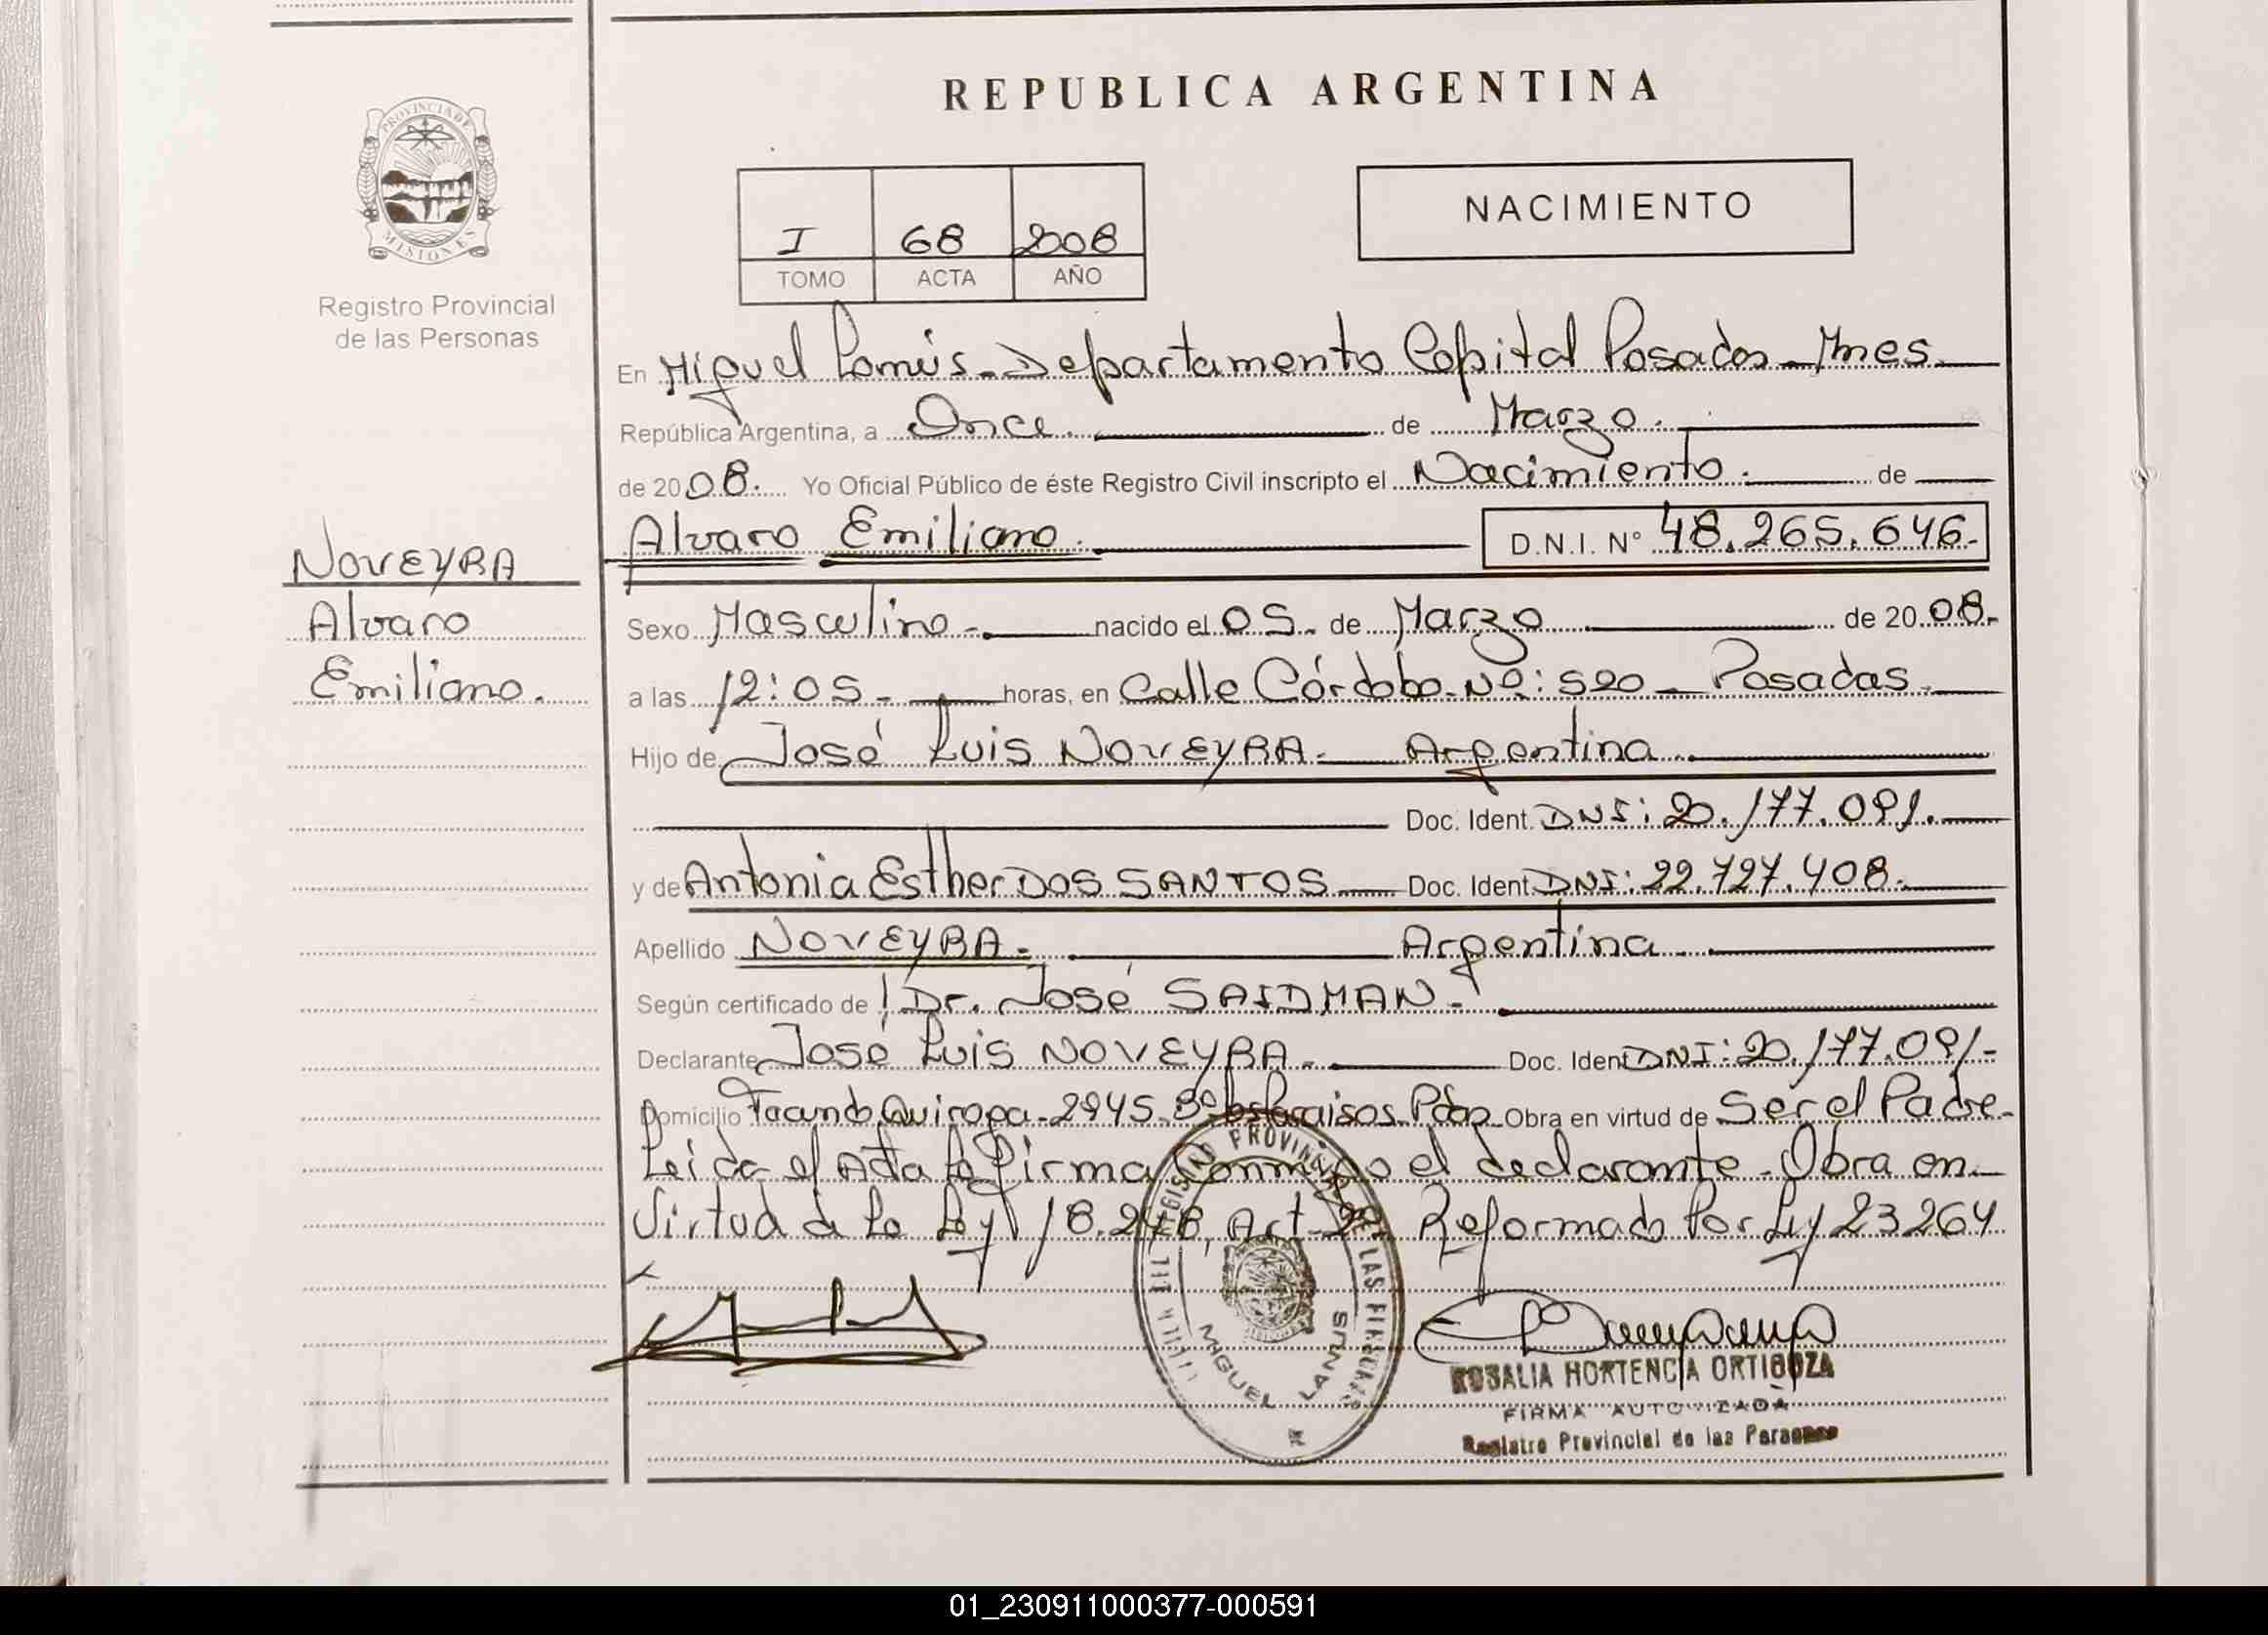 REPUBLICA ARGENTINA
PROVINCIA DE MISIONES
Registro Provincial
de las Personas
I 68 2008
TOMO ACTA AÑO
NACIMIENTO
En Miguel Lanús - Departamento Capital Posadas - Mnes.
República Argentina, a Once. de Marzo.
de 2008. Yo Oficial Público de éste Registro Civil inscripto el Nacimiento. de
Alvaro Emiliano. D.N.I. Nº 48.265.646.-
NOVEYRA
Alvaro
Emiliano.
Sexo Masculino - nacido el 05. de Marzo de 2008.-
a las 12:05 - horas, en Calle Córdoba Nº: 520 - Posadas.
Hijo de José Luis NOVEYRA - Argentina.
Doc. Ident. DNI: 20.177.091.
y de Antonia Esther DOS SANTOS Doc. Ident. DNI: 22.727.408.
Apellido NOVEYRA - Argentina
Según certificado de Dr. José SAIDMAN -
Declarante José Luis NOVEYRA - Doc. Ident DNI: 20.177.091-
Domicilio Facundo Quiroga - 2945 - Bº los Paraisos Pdas Obra en virtud de Ser el Padre -
Leida el Acta la firma Conmigo el declarante - Obra en
Virtud a la Ley 18.248, Art - 2º Reformado Por Ley 23264
REGISTRO PROVINCIAL DE LAS PERSONAS
MIGUEL LANUS
ROSALIA HORTENCIA ORTIGOZA
FIRMA AUTORIZADA
Registro Provincial de las Personas
01_230911000377-000591